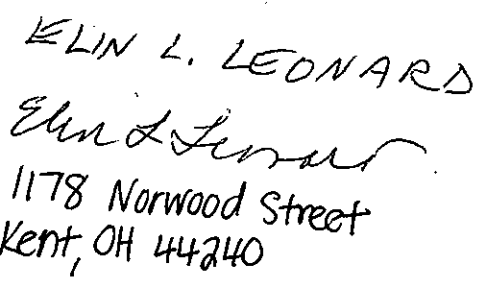 ELIN L. LEONARD
Elin L Leonard
1178 Norwood Street
Kent, OH 44240